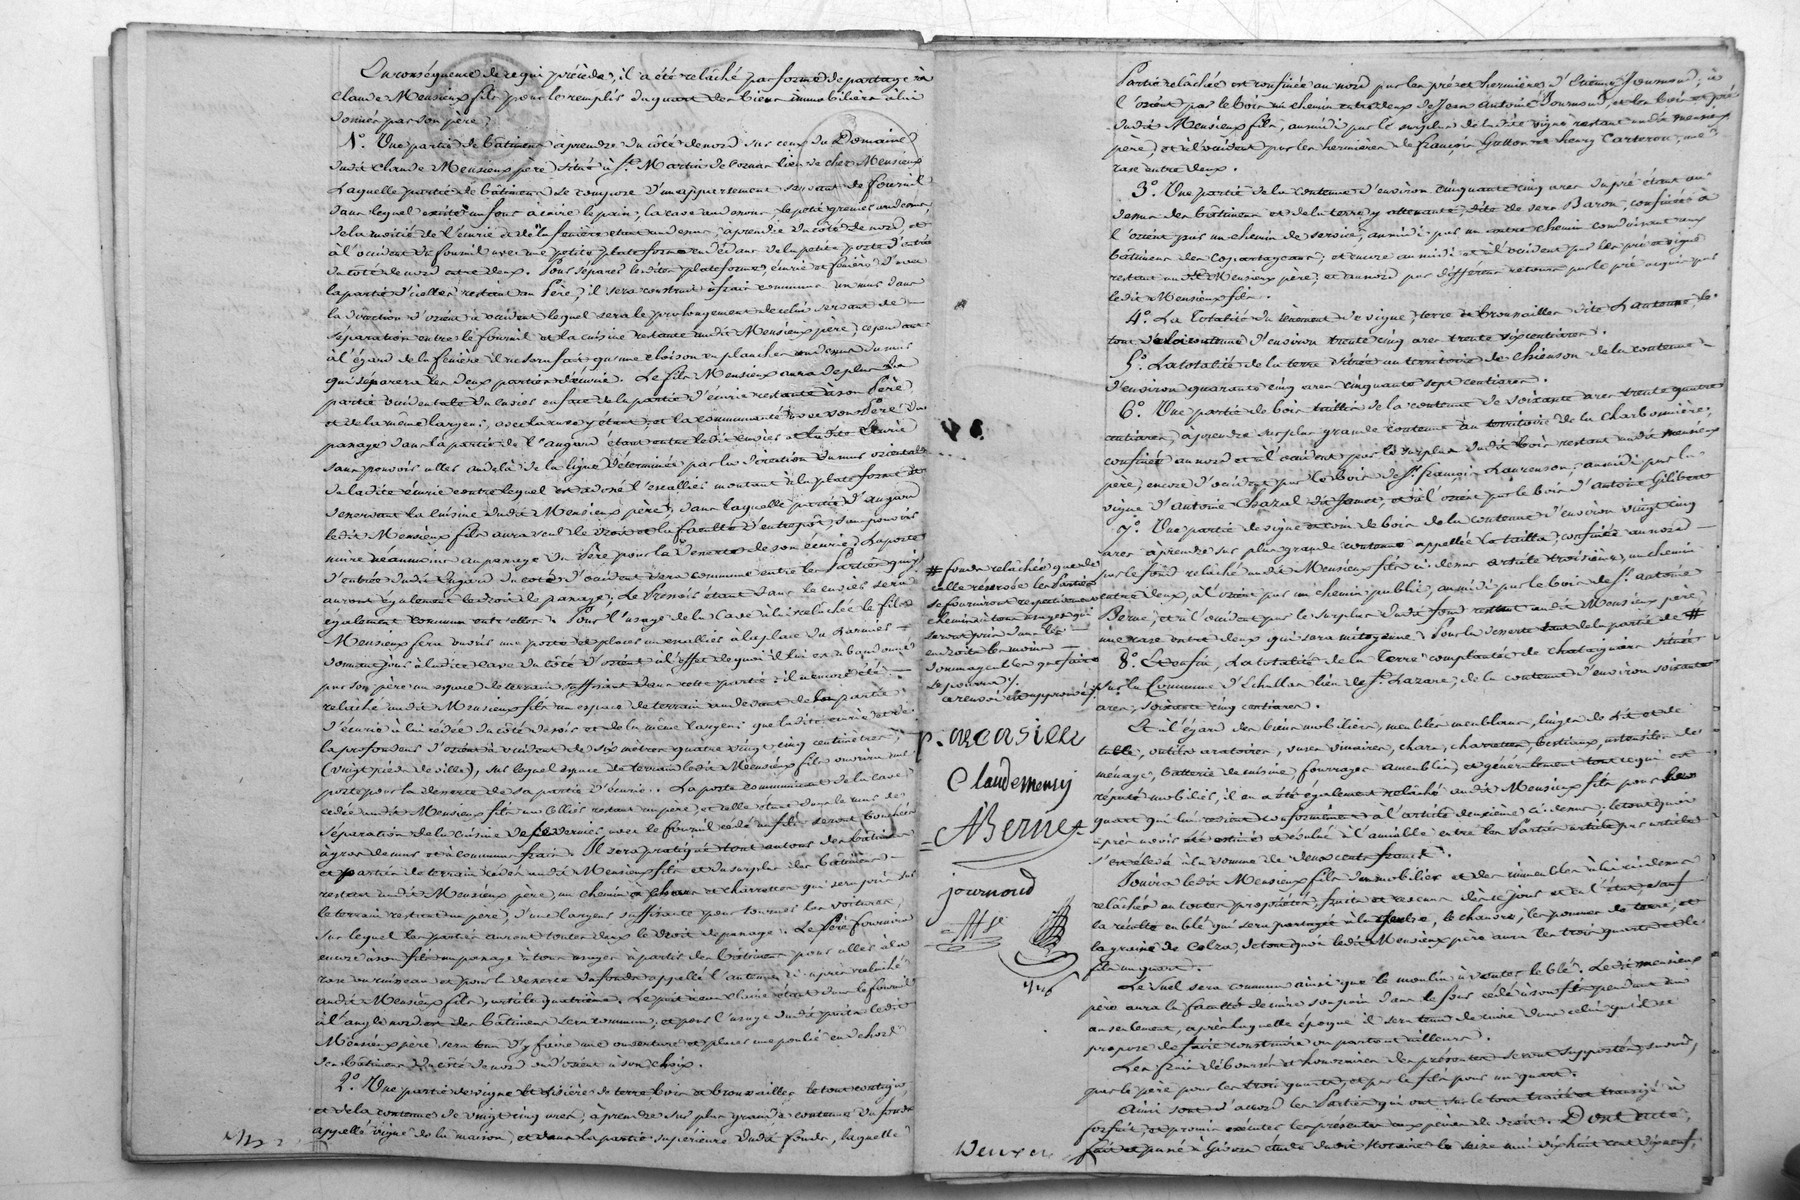 En conséquence de ce qui précède, il a été relâché par forme de partage à
Claude Mensieux fils pour le remplir du quart des biens immobiliers à lui
donnés par son père,
1° Une partie de bâtimens à prendre du côté de nord sur ceux du Domaine
dudit Claude Mensieux père situé à St Martin de Cornas lieu de chez Mensieux
Laquelle partie de bâtimens se compose d'un appartement servant de fournil
dans lequel existe un four à cuire le pain, la cave au dessous, le petit grenier au dessus,
de la moitié de l'écurie et de la fenière étant au dessus, à prendre du côté de nord, et
à l'occident du fournil avec une petite plateforme en dedans de la petite porte d'entrée
du côté de nord entre deux. Pour séparer lesdites plateforme, écurie et fenière d'avec
la partie d'icelles restant au Père, il sera construit à frais communs un mur dans
la direction d'orient à occident lequel sera le prolongement de celui servant de
séparation entre le fournil et la cuisine restante audit Mensieux père; cependant
à l'égard de la fenière il ne sera fait qu'une cloison en planches au dessus du mur
qui séparera les deux parties d'écurie. Le fils Mensieux aura de plus la
partie occidentale du cuvier en face de la partie d'écurie restante à son Père
et de la même largeur, avec la cuve y étant, et la communauté avec son Père du
passage dans la partie de l'angard étant entre ledit cuvier et ladite Ecurie
sans pouvoir aller au delà de la ligne déterminée par la direction du mur oriental
de ladite écurie contre lequel est adossé l'escalier montant à la plateforme et
desservant la cuisine dudit Mensieux père, dans laquelle partie d'angard
ledit Mensieux fils aura seul le droit et la faculté d'entrepôt, sans pouvoir
nuire néanmoins au passage du Père pour la desserte de son écurie; La porte
d'entrée dudit Angard du côté d'occident sera commune entre les Parties qui y
auront également le droit de passage; Le Pressoir étant dans le cuvier sera
également commun entre elles. Pour l'usage de la Cave à lui relâchée le fils
Mensieux fera ouvrir une porte et placer un escalier à la place du Larmier
donnant jour à ladite cave du côté d'orient à l'effet de quoi il lui est abandonné
par son père un espace de terrain suffisant dans cette partie; il a encore été
relâché audit Mensieux fils un espace de terrain au devant de la partie
d'écurie à lui cédée du côté de soir et de la même largeur que ladite écurie et de
la profondeur d'orient à occident de six mètres quatre vingt cinq centimètres,
(vingt pieds de ville), sur lequel espace de terrain ledit Mensieux fils ouvrira une
porte pour la desserte de sa partie d'écurie. La porte communicant de la cave
cédée audit Mensieux fils au cellier restant au père, et celle étant dans le mur de
séparation de la cuisine de ce dernier, avec le fournil cédé au fils seront bouchées
à gros de murs et à communs frais. Il sera pratiqué tout autour des bâtimens
et parties de terrain cédés audit Mensieux fils et du surplus des bâtimens
restant audit Mensieux père, un chemin à chars et charrettes qui sera pris sur
le terrain restant au père, d'une largeur suffisante pour tourner les voitures,
sur lequel les parties auront toutes deux le droit de passage. Le Père fournira
encore à son fils un passage à tous usages à partir des bâtimens pour aller à la
rase ou ruisseau et pour la desserte du fonds appellé l'antoune ci après relâché
audit Mensieux fils, article quatrième. Le puit à eau claire étant dans le fournil
à l'angle nord est des bâtimens sera commun, et pour l'usage dudit puits ledit
Mensieux père sera tenu d'y faire une ouverture et placer une poulie en dehors
des bâtimens du côté de nord ou d'orient à son choix.
2° Une partie de vigne et Lisière de terre bois et broussailles le tout contigu,
et de la contenue de vingt cinq ares, à prendre sur plus grande contenue du fonds
appellé vigne de la maison, et dans la partie supérieure dudit fonds, laquelle
Partie relâchée est confinée au nord par les prés et hermière d'Etienne Journoud; à
l'orient par le bois un chemin entre deux de Jean Antoine Journoud, et les bois et pré
dudit Mensieux fils, au midi par le surplus de ladite vigne restant audit Mensieux
père, et à l'occident par les hermières de françois Gallon et henry Carteron, une
rase entre deux.
3° Une partie de la contenue d'environ cinquante cinq ares du pré étant au
dessus des bâtimens et de la terre y attenante, dite de sera Baron, confinée à
l'orient par un chemin de service, au midi par un autre chemin conduisant aux
bâtimens des Copartageans; et encore au midi et à l'occident par les pré et vigne
restant audit Mensieux père; et au nord par différens retours par le pré acquis par
ledit Mensieux fils.
4° La Totalité du tènement de vigne, terre et broussailles dite Lantoune le
tout de la contenue d'environ trente cinq ares trente six centiares.
5° La totalité de la terre située au territoire de Chienson de la contenue
d'environ quarante cinq ares cinquante sept centiares.
6° Une partie de bois taillis de la contenue de soixante ares trente quatre
centiares, à prendre sur plus grande contenue au territoire de la Charbonnière,
confinée au nord et à l'occident par le surplus dudit bois restant audit Mensieux
père, encore d'occident par le bois de Sr françois Laurenson, au midi par la
vigne d'Antoine Chazal dit Jamet, et à l'orient par le bois d'Antoine Gilibert
7° Une partie de vigne et coin de bois de la contenue d'environ vingt cinq
ares à prendre sur plus grande contenue appellée la tailla, confinée au nord
par le fond relâché audit Mensieux fils ci dessus article troisième, un chemin
entre deux, à l'orient par un chemin public, au midi par le bois de Sr antoine
Berne, et à l'occident par le surplus dudit fond restant audit Mensieux père,
une rase entre deux qui sera mitoyenne. Pour la desserte tant de la partie de #
8° Et enfin, La totalité de la Terre complantée de chataigniers située
sur la Commune d'Echallas lieu de St Lazare, de la contenue d'environ soixante
ares, soixante cinq centiares.
Et à l'égard des biens mobiliers, meubles meublans, linges de lit et de
table, outils aratoires, vases vinaires, chars, charrettes, bestiaux, ustensiles de
ménage, batterie de cuisine, fourrages ameublis, et généralement tout ce qui est
réputé mobilier, il en a été également relâché audit Mensieux fils pour le
quart qui lui revient conformément à l'article deuxième ci dessus; le tout quoi
après avoir été estimé et évalué à l'amiable entre les Parties article par article
s'est élevé à la somme de deux cents francs.
Jouira ledit Mensieux fils des mobilier et des immeubles à lui ci dessus
relâchés en toutes propriétés, fruits et revenus dès ce jour et à l'état, sauf
la récolte en blé qui sera partagée à la Gerbe, le chanvre, les pommes de terre, et
la graine de Colza, de tout quoi ledit Mensieux père aura les trois quarts et le
fils un quart.
Le Suel sera commun ainsi que le moulin à venter le blé. Ledit Mensieux
père aura la faculté de cuire son pain dans le four cédé à son fils pendant un
an seulement, après laquelle époque il sera tenu de cuire dans celui qu'il se
propose de faire construire ou partout ailleurs.
Les frais déboursés et honoraires des présentes seront supportés, savoir,
par le père pour les trois quarts, et par le fils pour un quart.
Ainsi sont d'accord les Parties qui ont sur le tout traité et transigé à
forfait, et promis exécuter les présentes aux peines de droit. Dont acte,
fait et passé à Givors étude dudit Notaire le seize mai dix huit cent dix neuf,
# fonds relachée que de
celle réservée les Parties
se fourniront respectivement
chemin à tous usages qui
seront pris dans les
endroits les moins
dommageables que faire
se pourra ./.
Claude mensy
ABerne
journoud